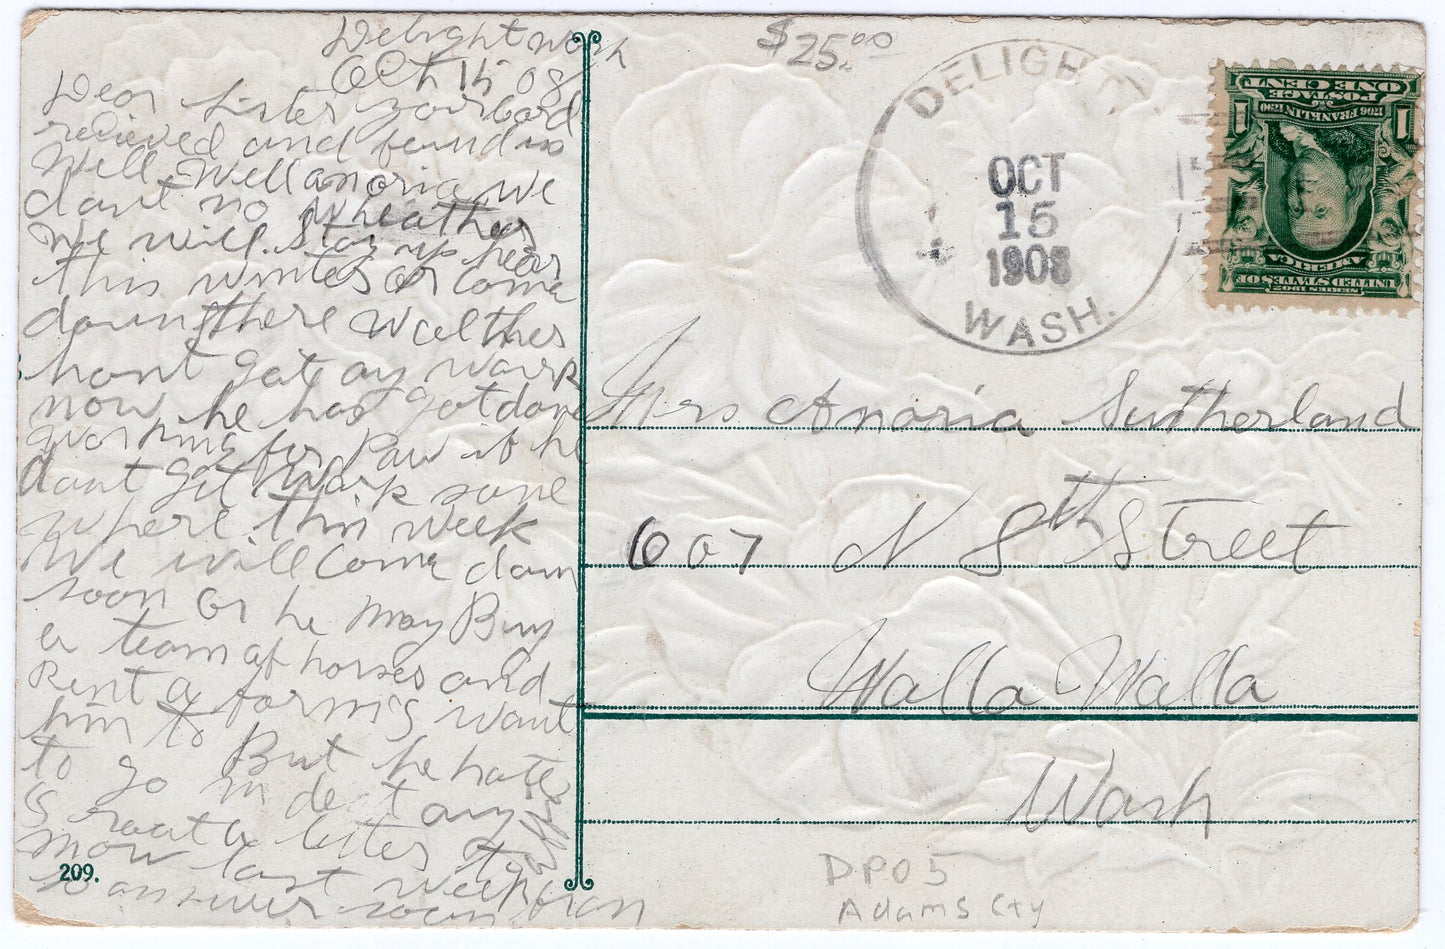 Delight Wash
Oct 15 08
Dear Sister your Card
recieved and found us
Well. Well anoria We
dant no Wheather
We will stay up hear
this winter or come
down there Walther
hant got any Work
now he has got done
working for Paw if he
dant get Work some
where this week
We will come down
soon or he may Buy
a team of horses and
Rent a farm
him to But he hates
to go in det any
letter to
maw last week
answer soon
209.
$25.00
DELIGHT
OCT
15
1908
WASH.
SERIES 1902
UNITED STATES OF
AMERICA
1706 FRANKLIN 1790
POSTAGE
1 ONE CENT 1
Mrs Anoria Sutherland
607 N 8th Street
Walla Walla
Wash
DPO 5
Adams Cty